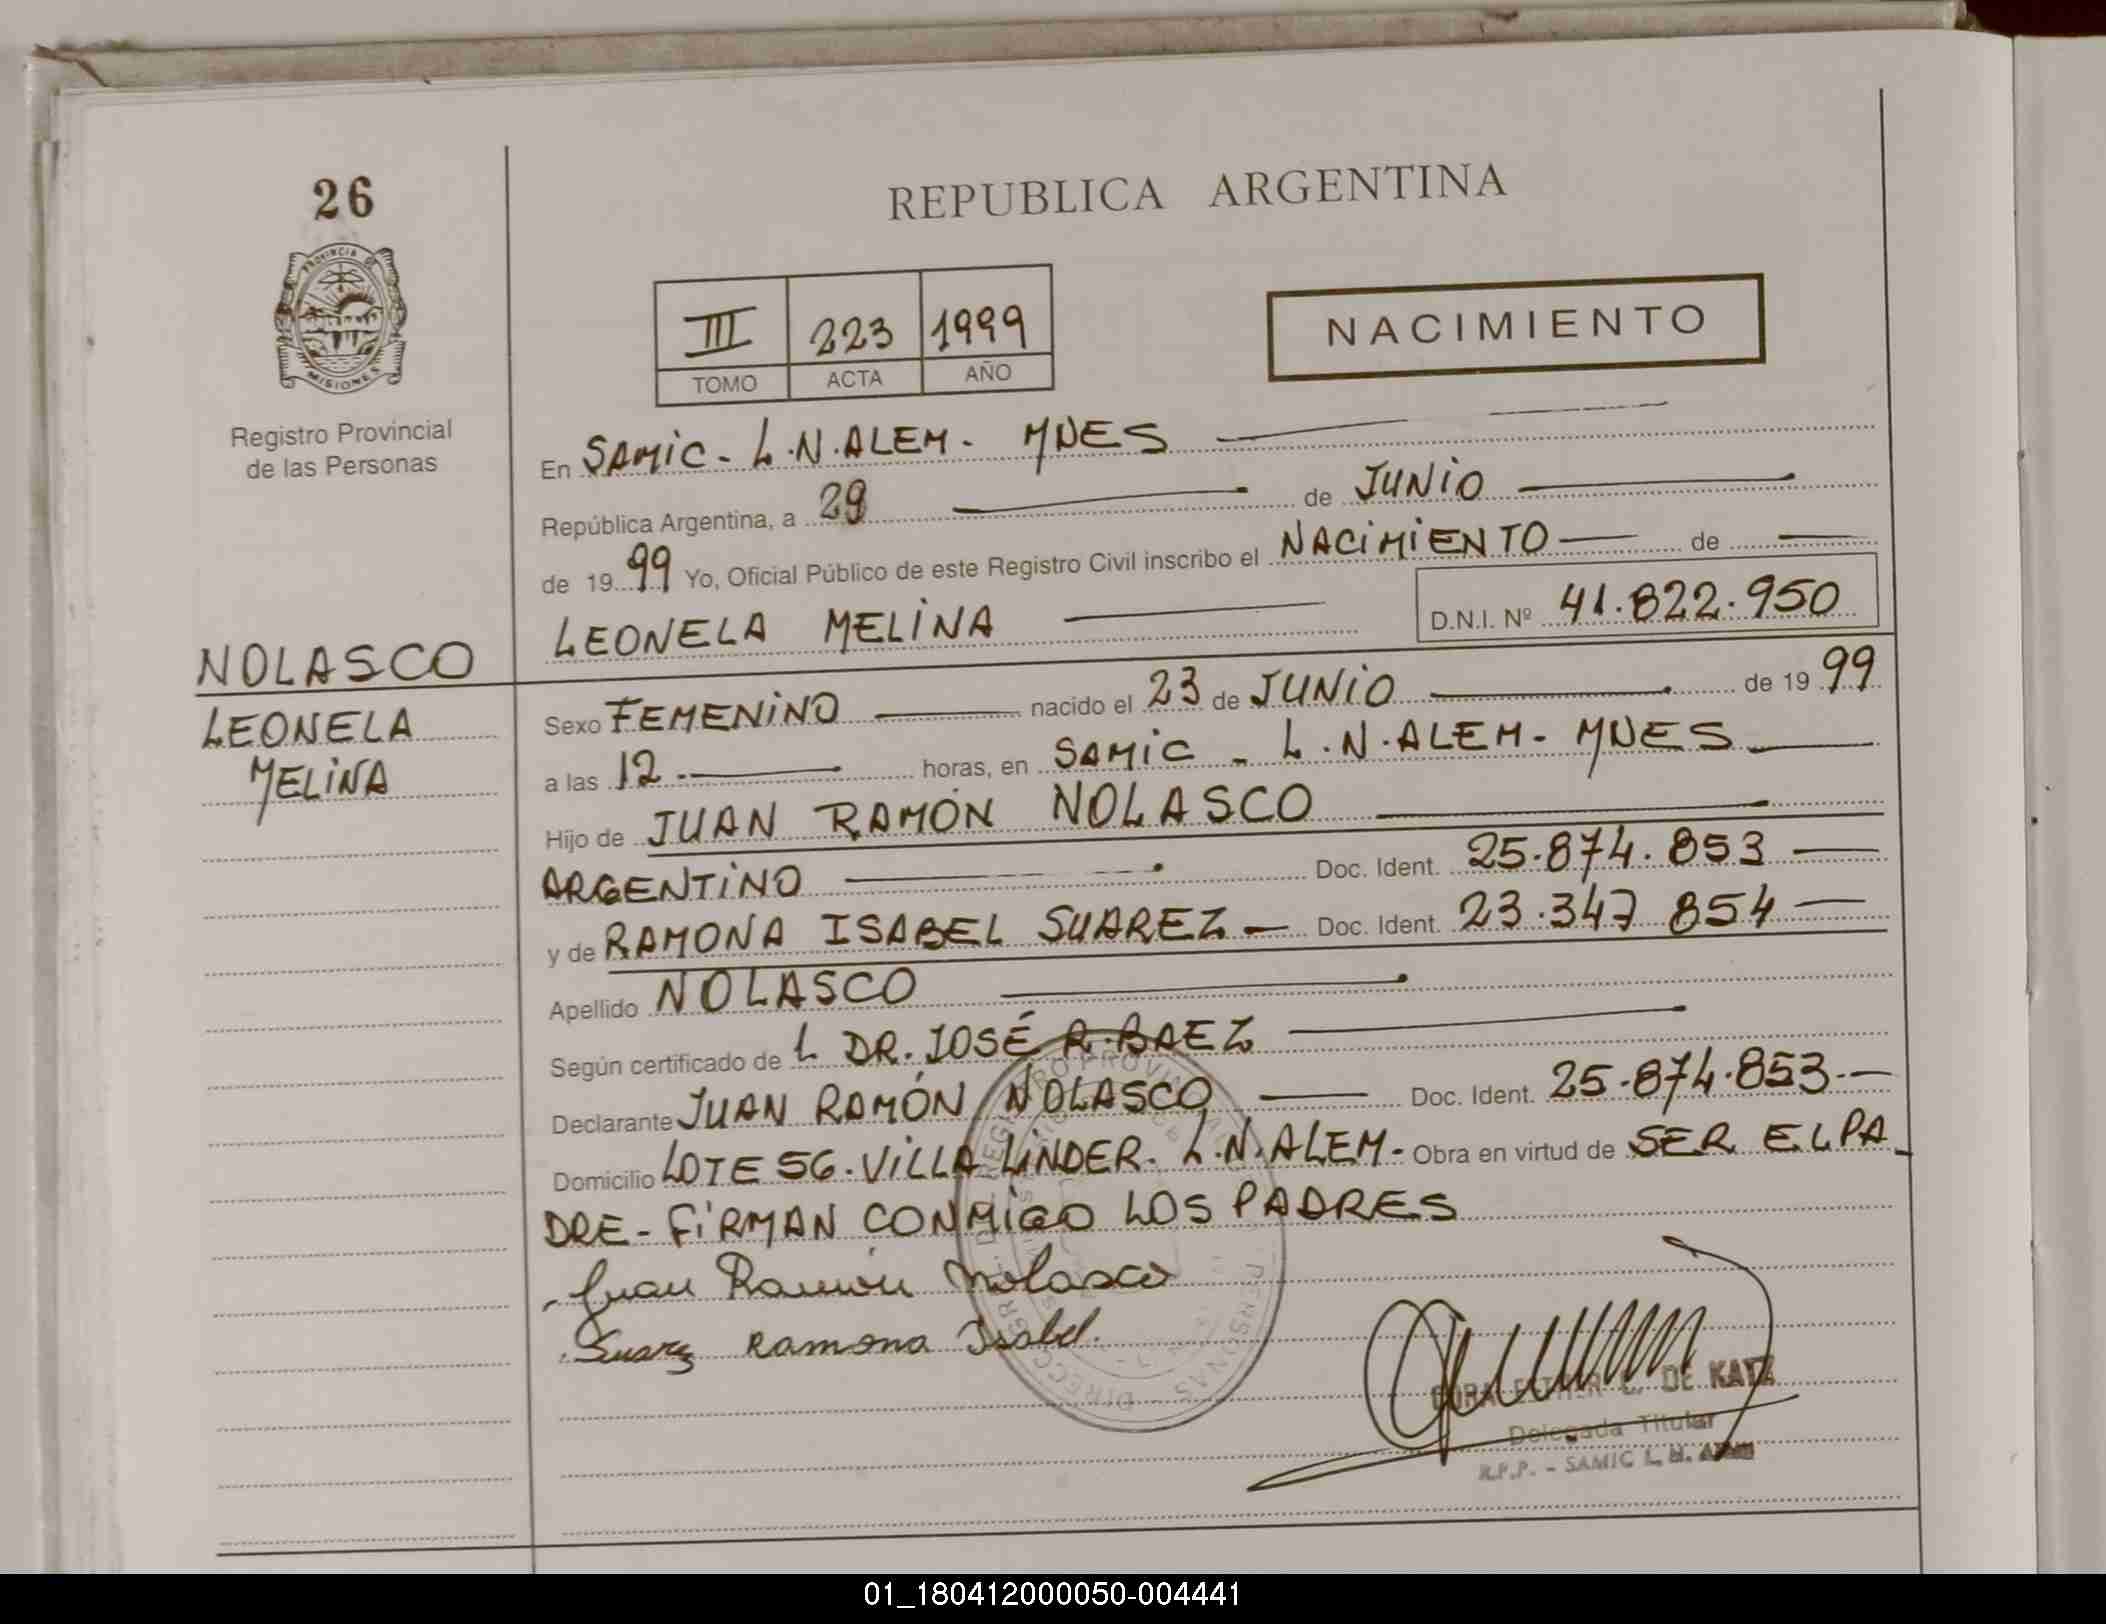 26
REPUBLICA ARGENTINA
PROVINCIA DE
MISIONES
Registro Provincial
de las Personas
III 223 1999
TOMO ACTA AÑO
NACIMIENTO
En SAMIC - L.N. ALEM - MNES
República Argentina, a 29 de JUNIO
de 1999 Yo, Oficial Público de este Registro Civil inscribo el NACIMIENTO de
LEONELA MELINA D.N.I. Nº 41.822.950
NOLASCO
LEONELA
MELINA
Sexo FEMENINO nacido el 23 de JUNIO de 1999
a las 12 horas, en SAMIC - L.N. ALEM - MNES
Hijo de JUAN RAMÓN NOLASCO
ARGENTINO Doc. Ident. 25.874.853
y de RAMONA ISABEL SUAREZ Doc. Ident. 23.347 854
Apellido NOLASCO
Según certificado de L DR. JOSÉ R. BAEZ
Declarante JUAN RAMÓN NOLASCO Doc. Ident. 25.874.853
Domicilio LOTE 56. VILLA LINDER. L.N. ALEM - Obra en virtud de SER EL PA
DRE - FIRMAN CONMIGO LOS PADRES
Juan Ramón Nolasco
Suarez Ramona Isabel.
DE KATZ
Delegada Titular
R.P.P. - SAMIC L. N. ALEM
01_180412000050-004441